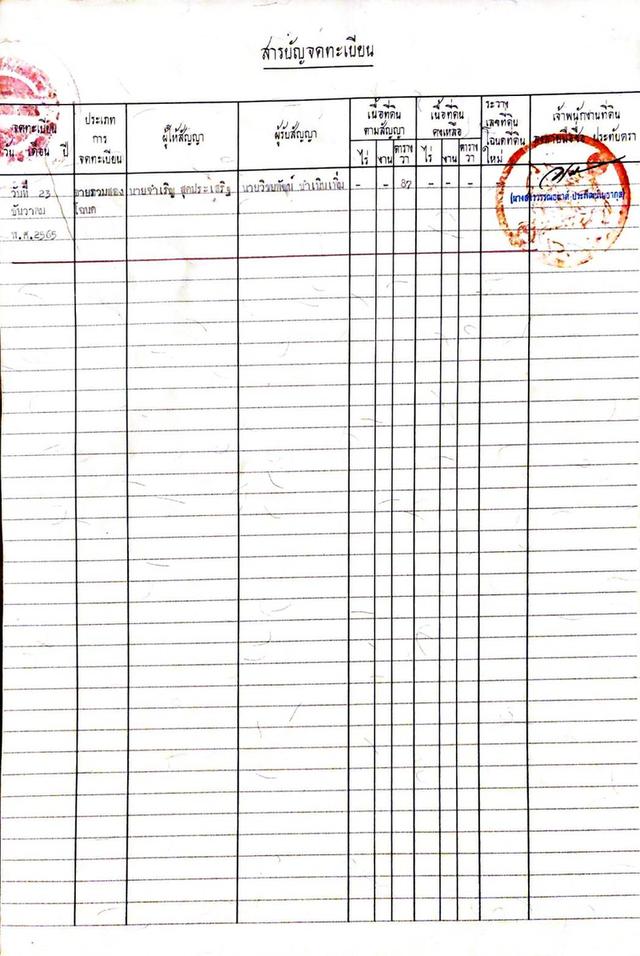 สารบัญจดทะเบียน
จดทะเบียน
วัน เดือน ปี
ประเภท
การ
จดทะเบียน
ผู้ให้สัญญา
ผู้รับสัญญา
เนื้อที่ดิน
ตามสัญญา
ไร่ งาน ตาราง
วา
เนื้อที่ดิน
คงเหลือ
ไร่ งาน ตาราง
วา
ระวาง
เลขที่ดิน
โฉนดที่ดิน
ใหม่
เจ้าพนักงานที่ดิน
ลงลายมือชื่อ ประทับตรา
วันที่ 23 ขายรวมสอง นายจำเริญ สุดประเสริฐ - - 87 - - -
ธันวาคม โฉนด
พ.ศ.2565